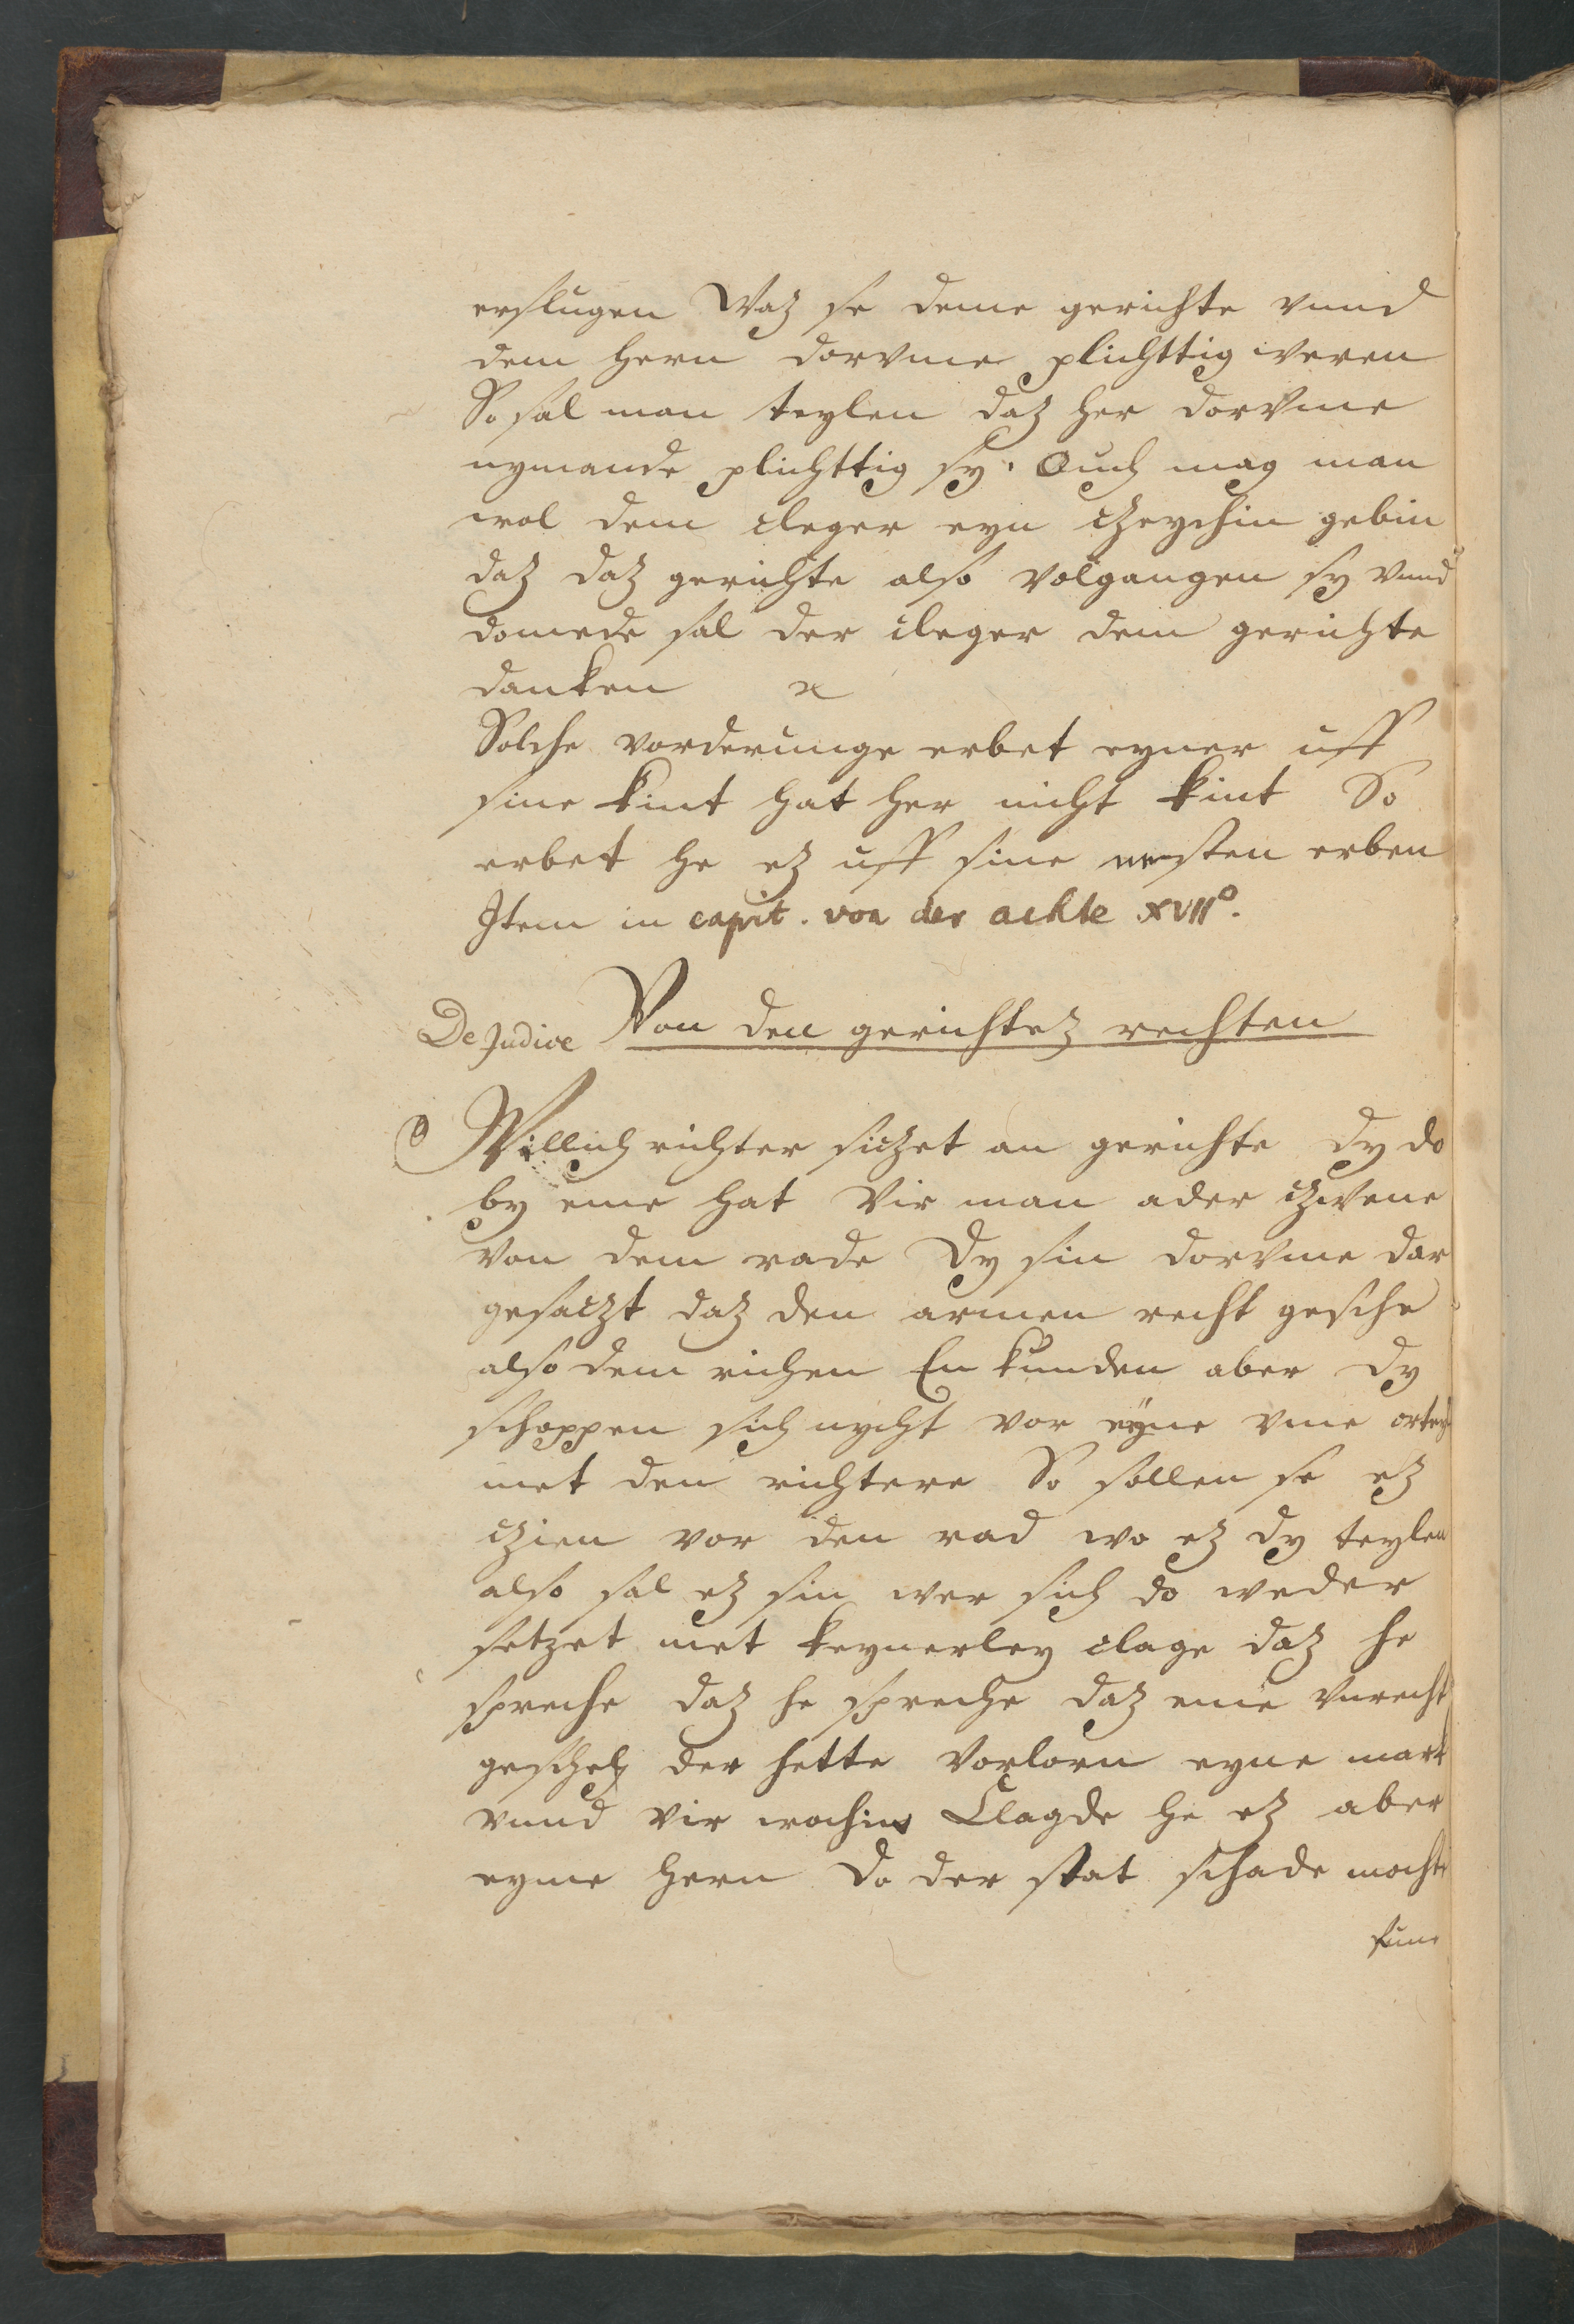 erslugen Waz se deme gerichte vnnd
dem hern dorvme plichttig weren
So sal man teylen daz her dorvme
nymande plichttig sy. Ouch mag man
wol dem cleger eyn czeychin gebin
daz daz gerichte also volgangen sy vnnd
domede sal der cleger dem gerichte
danken
Solche vorderunge erbet eyner uff
sine kint hat her nicht kint So
erbet he ez uff sine nesten erben
Item in capit. von der achte XVII°.
De Judice Von den gerichtez rechten
Willich richter siczet an gerichte dy do
by eme hat vir man ader czwene
von dem rade Dy sin dorvme dar
gesaczt daz den armen recht gesche
also dem richen En kunden aber dy
schoppen sich nycht vor eyne vme
met den richtere So sollen se ez
czien vor den rad wo ez dy teylen
also sal ez sin wer sich do weder
setzet met keynerley clage daz he
spreche daz he spreche daz eme vnrecht
gescheh der hette vorlorn eyne mark
vnnd vir wochin Clagde he ez aber
eyme hern do der stat schade mochte